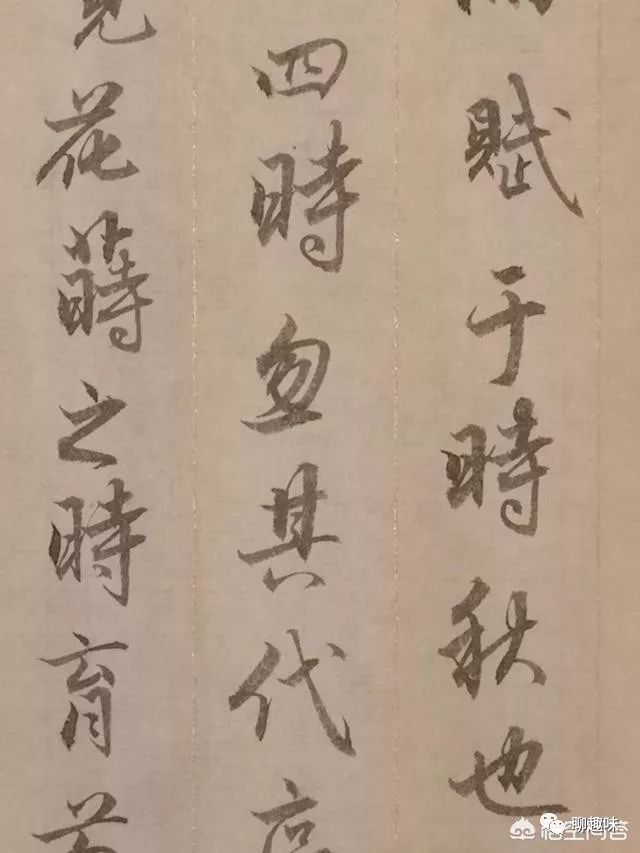 賦于時秋也
四時忽其代
花蒔之時育
聊趣味